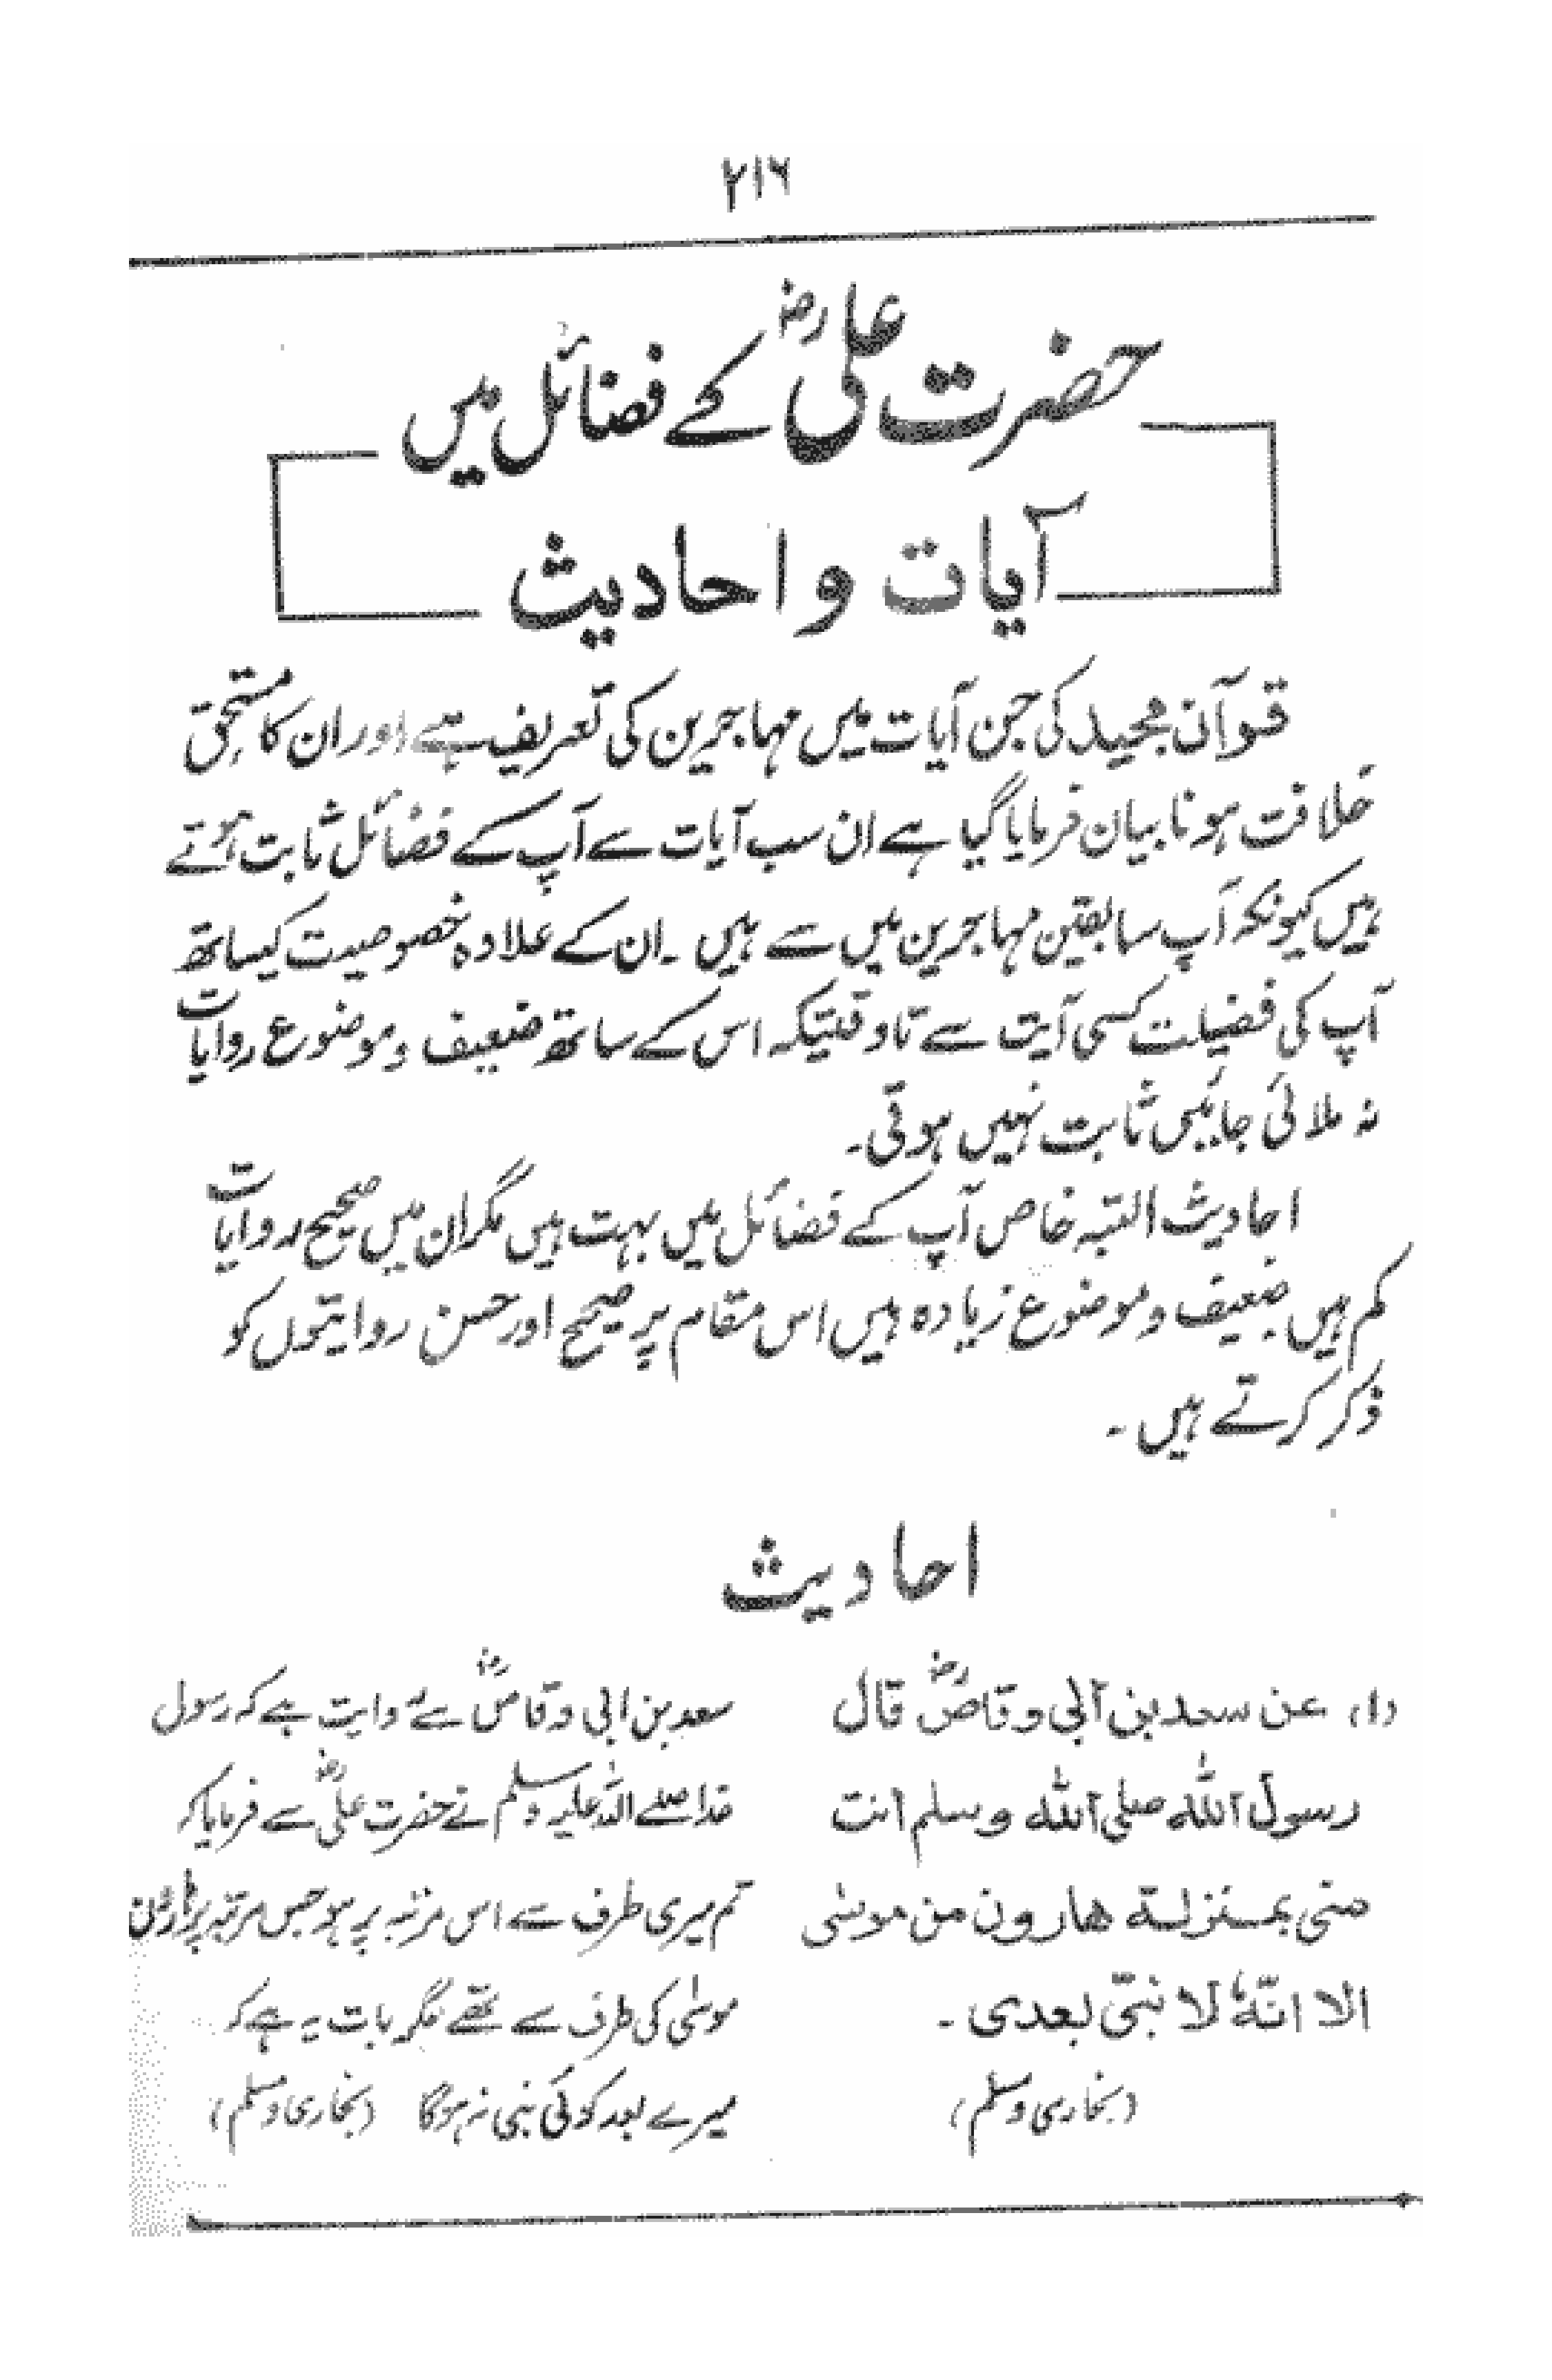 ۲۱۶
حضرت علی رضؓ کے فضائل میں
آیات و احادیث
قرآن مجید کی جن آیات میں مہاجرین کی تعریف ہے اور ان کا مستحق
خلافت ہونا بیان فرمایا گیا ہے ان سب آیات سے آپ کے فضائل ثابت ہوتے
ہیں کیونکہ آپ سابقین مہاجرین میں سے ہیں ۔ ان کے علاوہ خصوصیت کیساتھ
آپ کی فضیلت کسی آیت سے تاوقتیکہ اس کے ساتھ ضعیف و موضوع روایات
نہ ملائی جائیں ثابت نہیں ہوتی۔
احادیث البتہ خاص آپ کے فضائل میں بہت ہیں مگر ان میں صحیح روایات
کم ہیں ضعیف و موضوع زیادہ ہیں اس مقام پر صحیح اور حسن روایتوں کو
ذکر کرتے ہیں ۔
احادیث
(۱) عن سعد بن ابی وقاصؓ قال
رسول اللہ صلی اللہ وسلم انت
منی بمنزلۃ ھارون من موسٰی
الا انّہٗ لا نبیّ بعدی ۔
(بخاری و مسلم)
سعد بن ابی وقاصؓ سے روایت ہے کہ رسول
خدا صلے اللہ علیہ وسلم نے حضرت علیؓ سے فرمایا کہ
تم میری طرف سے اس مرتبہ پر ہو جس مرتبہ پر ہارون
موسٰی کی طرف سے تھے مگر بات یہ ہے کہ
میرے بعد کوئی نبی نہ ہوگا (بخاری و مسلم)